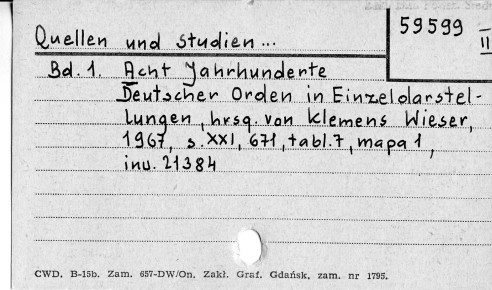 59599
II
Quellen und studien...
Bd. 1. Acht Jahrhunderte
Deutscher Orden in Einzeldarstel-
lungen, hrsg. von Klemens Wieser,
1967, s. XXI, 671, tabl. 7, mapa 1,
inw. 21384
CWD. B-15b. Zam. 657-DW/On. Zakł. Graf. Gdańsk, zam. nr 1795.